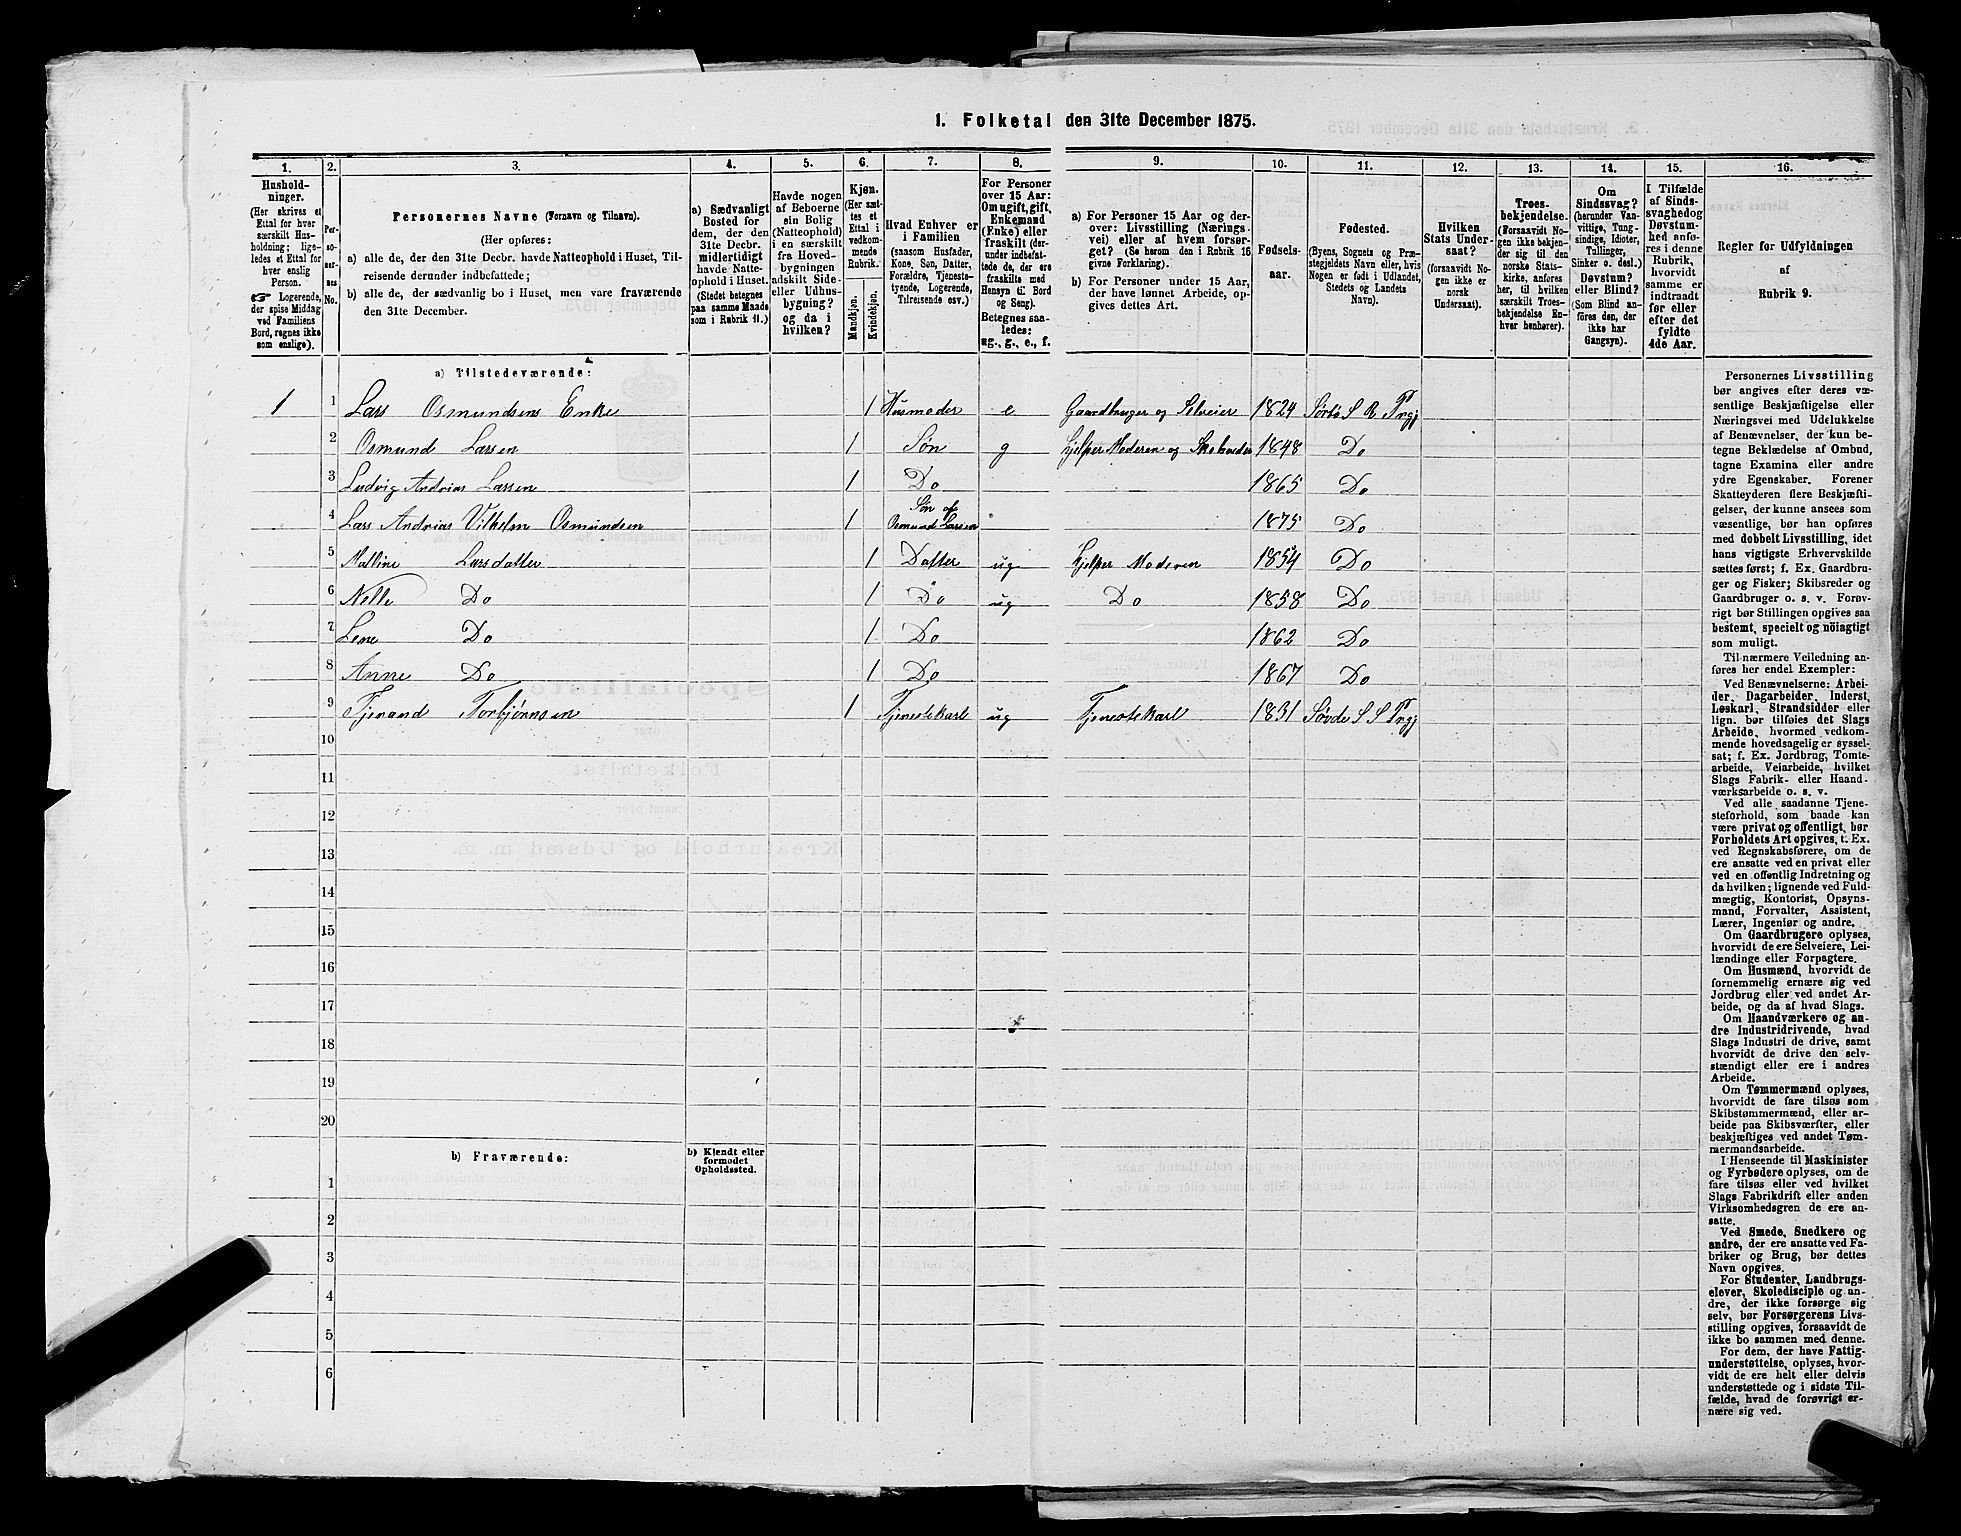 1. Folketal den 31te December 1875.
1. 2. 3. 4. 5. 6. 7. 8. 9. 10. 11. 12. 13. 14. 15. 16.
Hushold-
ninger.
(Her skrives et
Ettal for hver
særskilt Hus-
holdning; lige-
ledes et Ettal for
hver enslig
Person.
☞ Logerende,
der spise Middag
ved Familiens
Bord, regnes ikke
som enslige).
Per-
so-
ner-
nes
No.
Personernes Navne (Fornavn og Tilnavn).
(Her opføres:
a) alle de, der den 31te Decbr. havde Natteophold i Huset, Til-
reisende derunder indbefattede;
b) alle de, der sædvanlig bo i Huset, men vare fraværende
den 31te December.
a) Sædvanligt
Bosted for
dem, der den
31te Decbr.
midlertidigt
havde Natte-
ophold i Huset.
(Stedet betegnes
paa samme Maade
som i Rubrik 11.)
Havde nogen
af Beboerne
sin Bolig
(Natteophold)
i en særskilt
fra Hoved-
bygningen
adskilt Side-
eller Udhus-
bygning?
og da i
hvilken?
Kjøn.
(Her sæt-
tes et
Ettal i
vedkom-
mende
Rubrik.)
Mandkjøn.
Kvindekjøn.
Hvad Enhver er
i Familien
(saasom Husfader,
Kone, Søn, Datter,
Forældre, Tjeneste-
tyende, Logerende,
Tilreisende osv.)
For Personer
over 15 Aar:
Om ugift, gift,
Enkemand
(Enke) eller
fraskilt (der-
under indbefat-
tede de, der ere
fraskilte med
Hensyn til Bord
og Seng).
Betegnes saa-
ledes:
ug., g., e., f.
a) For Personer 15 Aar og der-
over: Livsstilling (Nærings-
vei) eller af hvem forsør-
get? (Se herom den i Rubrik 16
givne Forklaring).
b) For Personer under 15 Aar,
der have lønnet Arbeide, op-
gives dettes Art.
Fødsels-
aar.
Fødested.
(Byens, Sognets og Præ-
stegjeldets Navn eller, hvis
Nogen er født i Udlandet,
Stedets og Landets
Navn).
Hvilken
Stats Under-
saat?
(forsaavidt No-
gen ikke er
norsk
Undersaat).
Troes-
bekjendelse.
(Forsaavidt No-
gen ikke bekjen-
der sig til den
norske Stats-
kirke, anføres
her, til hvilken
særskilt Troes-
bekjendelse En-
hver henhører).
Om
Sindssvag?
(herunder Van-
vittige, Tung-
sindige, Idioter,
Tullinger,
Sinker o. desl.)
Døvstum?
eller Blind?
(Som Blind an-
føres den, der
ikke har
Gangsyn).
I Tilfælde
af Sinds-
svaghed og
Døvstum-
hed anfø-
res i denne
Rubrik,
hvorvidt
samme er
indtraadt
før eller
efter det
fyldte
4de Aar.
Regler for Udfyldningen
af
Rubrik 9.
a) Tilstedeværende:
1 1 Lars Osmundsens Enke 1 Husmoder e Gaardbruger og Selveier 1824
2 Osmund Larsen 1 Søn g hjelper Moderen og 1848 Do
3 Ludvig Andrias Larsen 1 Do 1865 Do
4 Lars Andrias Vilhelm Osmundsen 1 Søn af Osmund Larsen 1875 Do
5 Malline Larsdatter 1 Datter ug hjelper Moderen 1854 Do
6 Nelle Do 1 Do ug Do 1858 Do
7 Lene Do 1 Do 1862 Do
8 Anne Do 1 Do 1867 Do
9 Tjerand Torbjørnsen 1 Tjenestekarl ug Tjenestekarl 1831 Søvde S S Prgj
10
11
12
13
14
15
16
17
18
19
20
b) Fraværende:
b) Kjendt eller
formodet
Opholdssted.
1
2
3
4
5
6
Personernes Livsstilling
bør angives efter deres væ-
sentlige Beskjæftigelse eller
Næringsvei med Udelukkelse
af Benævnelser, der kun be-
tegne Beklædelse af Ombud,
tagne Examina eller andre
ydre Egenskaber. Forener
Skatteyderen flere Beskjæfti-
gelser, der kunne ansees som
væsentlige, bør han opføres
med dobbelt Livsstilling, idet
hans vigtigste Erhvervskilde
sættes først; f. Ex. Gaardbru-
ger og Fisker; Skibsreder og
Gaardbruger o. s. v. Forøv-
rigt bør Stillingen opgives saa
bestemt, specielt og nöiagtigt
som muligt.
Til nærmere Veiledning an-
føres her endel Exempler:
Ved Benævnelserne: Arbei-
der, Dagarbeider, Inderst,
Løskarl, Strandsidder eller
lign. bør tilføies det Slags
Arbeide, hvormed vedkom-
mende hovedsagelig er syssel-
sat; f. Ex. Jordbrug, Tomte-
arbeide, Veiarbeide, hvilket
Slags Fabrik- eller Haand-
værksarbeide o. s. v.
Ved alle saadanne Tjene-
steforhold, som baade kan
være privat og offentligt, bør
Forholdets Art opgives, t. Ex.
ved Regnskabsførere, om de
ere ansatte ved en privat eller
ved en offentlig Indretning og
da hvilken; lignende ved Fuld-
mægtig, Kontorist, Opsyns-
mand, Forvalter, Assistent,
Lærer, Ingeniør og andre.
Om Gaardbrugere oplyses,
hvorvidt de ere Selveiere, Lei-
lændinge eller Forpagtere.
Om Husmænd, hvorvidt de
fornemmelig ernære sig ved
Jordbrug eller ved andet Ar-
beide, og da af hvad Slags.
Om Haandværkere og an-
dre Industridrivende, hvad
Slags Industri de drive, samt
hvorvidt de drive den selv-
stændigt eller ere i andres
Arbeide.
Om Tømmermænd oplyses,
hvorvidt de fare tilsøs som
Skibstømmermænd, eller ar-
beide paa Skibsværfter, eller
beskjæftiges ved andet Tøm-
mermandsarbeide.
I Henseende til Maskinister
og Fyrbødere oplyses, om de
fare tilsøs eller ved hvilket
Slags Fabrikdrift eller anden
Virksomhedsgren de ere an-
satte.
Ved Smede, Snedkere og
andre, der ere ansatte ved Fa-
briker og Brug, bør dettes
Navn opgives.
For Studenter, Landbrugs-
elever, Skoledisciple og an-
dre, der ikke forsørge sig
selv, bør Forsørgerens Livs-
stilling opgives, forsaavidt de
ikke bo sammen med denne.
For dem, der have Fattig-
understøttelse, oplyses, hvor-
vidt de ere helt eller delvis
understøttede og i sidste Til-
fælde, hvad de forøvrigt er-
nære sig ved.